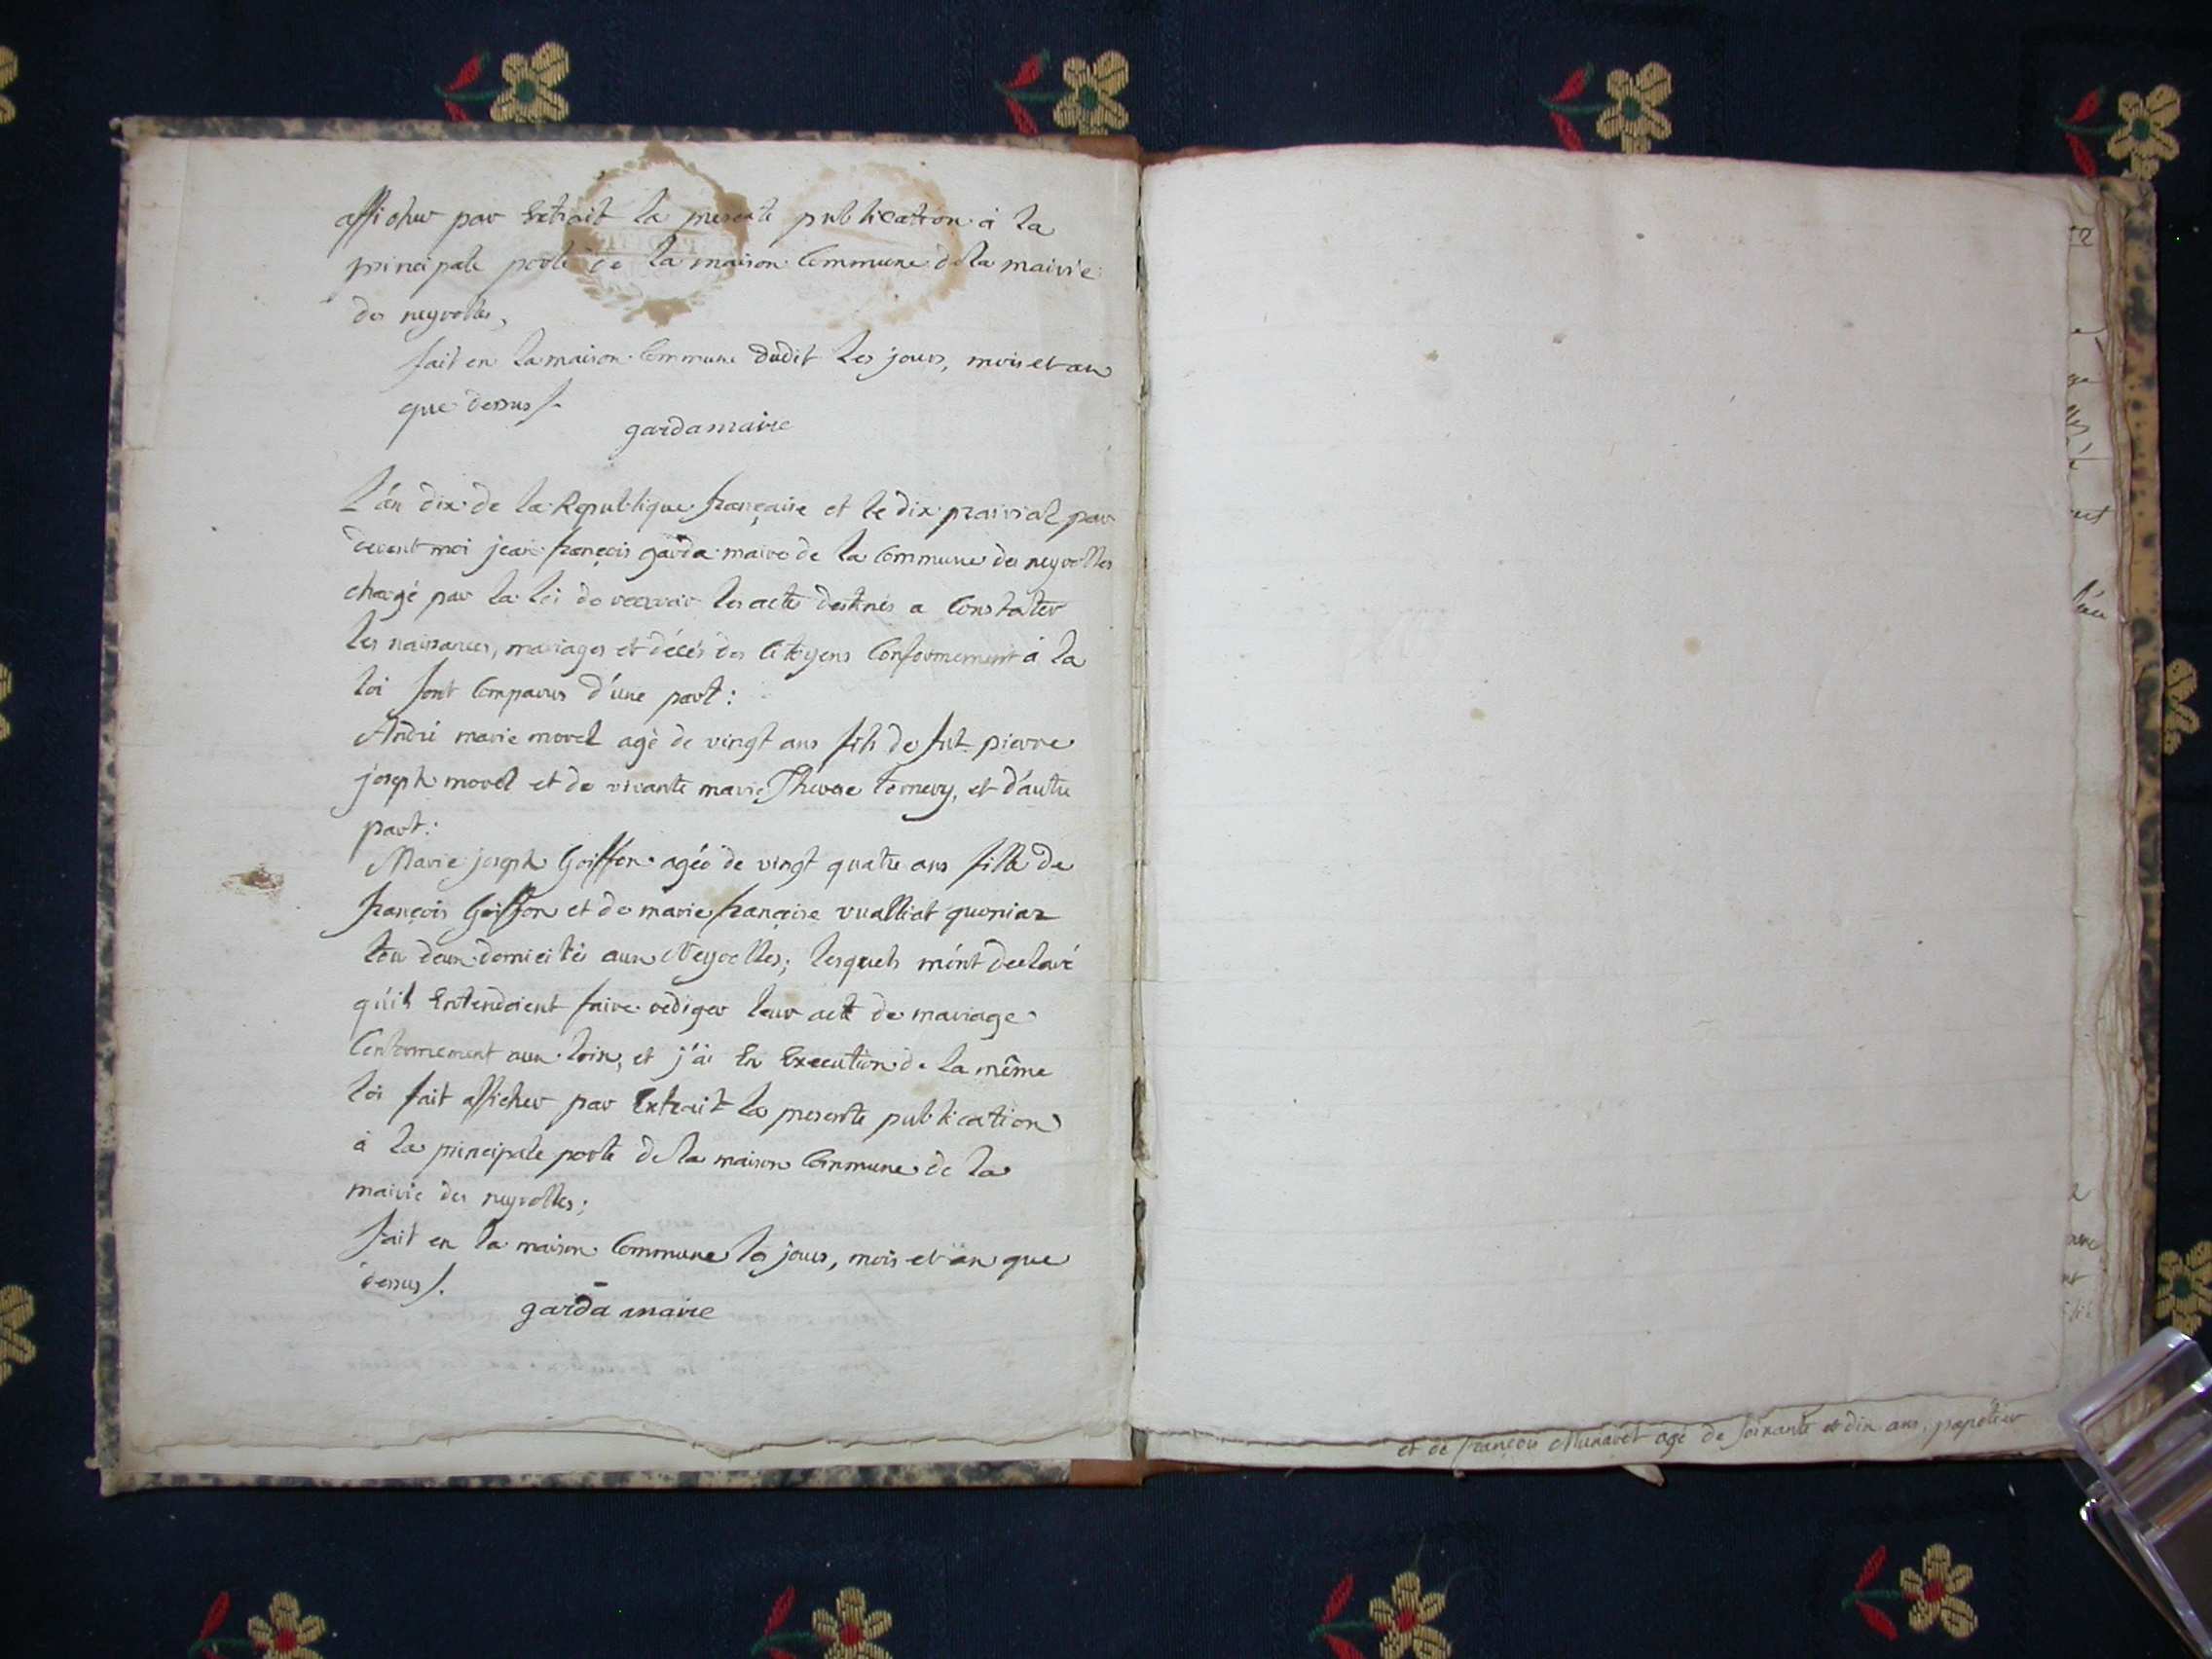 afficher par Extrait la presente publication à la
principale porte de la maison Commune de la mairie
des neyrolles,
fait en la maison Commune dudit les jours, mois et an
que dessus /.
garda maire
L'an dix de la Republique française et le dix prairial par
devant moi jean françois garda maire de la Commune des neyrolles
chargé par la loi de recevoir les actes destinés a Constater
les naissances, mariages et décés des Citoyens Conformement à la
loi sont Comparus d'une part:
André marie morel agé de vingt ans fils de fut pierre
joseph morel et de vivante marie Therese ternevy, et d'autre
part:
Marie joseph Goiffon agée de vingt quatre ans fille de
françois Goiffon et de marie françoise vualliat quoniaz
tou deux domiciliés aux Neyrolles; lesquels m'ont declaré
qu'ils Entendoient faire rediger leur acte de mariage
Conformement aux loix, et j'ai En Execution de la même
loi fait afficher par Extrait la presente publication
à la principale porte de la maison Commune de la
mairie des neyrolles;
fait en la maison Commune les jours, mois et an que
dessus /.
garda maire
et de françois Munaret agé de soixante et dix ans, papetier